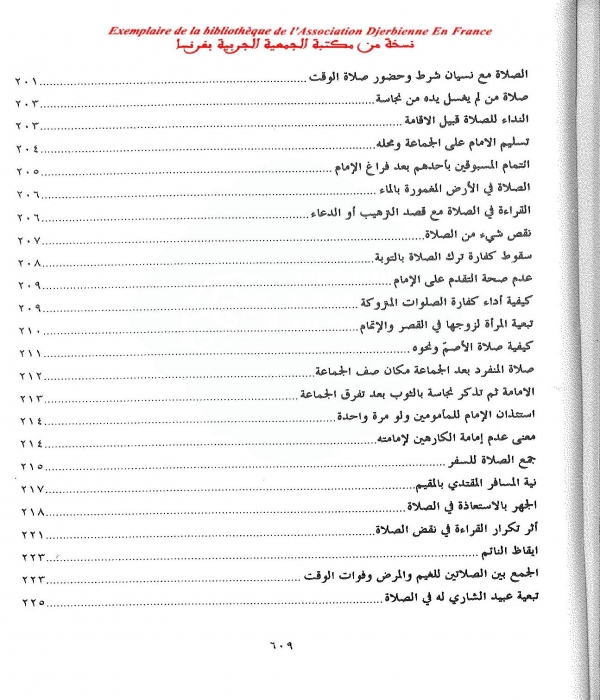 Exemplaire de la bibliothèque de l'Association Djerbienne En France
نسخة من مكتبة الجمعية الجربية بفرنسا
الصلاة مع نسيان شرط وحضور صلاة الوقت ........ ٢٠١
صلاة من لم يغسل يده من نجاسة ........ ٢٠٣
النداء للصلاة قبيل الاقامة ........ ٢٠٣
تسليم الامام على الجماعة ومحله ........ ٢٠٤
ائتمام المسبوقين بأحدهم بعد فراغ الإمام ........ ٢٠٥
الصلاة في الأرض المغمورة بالماء ........ ٢٠٦
القراءة في الصلاة مع قصد الترهيب أو الدعاء ........ ٢٠٦
نقص شيء من الصلاة ........ ٢٠٧
سقوط كفارة ترك الصلاة بالتوبة ........ ٢٠٨
عدم صحة التقدم على الإمام ........ ٢٠٩
كيفية أداء كفارة الصلوات المتروكة ........ ٢٠٩
تبعية المرأة لزوجها في القصر والإتمام ........ ٢١٠
كيفية صلاة الأصمّ ونحوه ........ ٢١١
صلاة المنفرد بعد الجماعة مكان صف الجماعة ........ ٢١٢
الامامة ثم تذكر نجاسة بالثوب بعد تفرق الجماعة ........ ٢١٣
استئذان الإمام للمأمومين ولو مرة واحدة ........ ٢١٤
معنى عدم إمامة الكارهين لإمامته ........ ٢١٤
جمع الصلاة للسفر ........ ٢١٥
نية المسافر المقتدي بالمقيم ........ ٢١٧
الجهر بالاستعاذة في الصلاة ........ ٢١٨
أثر تكرار القراءة في نقض الصلاة ........ ٢٢١
ايقاظ النائم ........ ٢٢٣
الجمع بين الصلاتين للغيم والمرض وفوات الوقت ........ ٢٢٣
تبعية عبيد الشاري له في الصلاة ........ ٢٢٥
٦٠٩